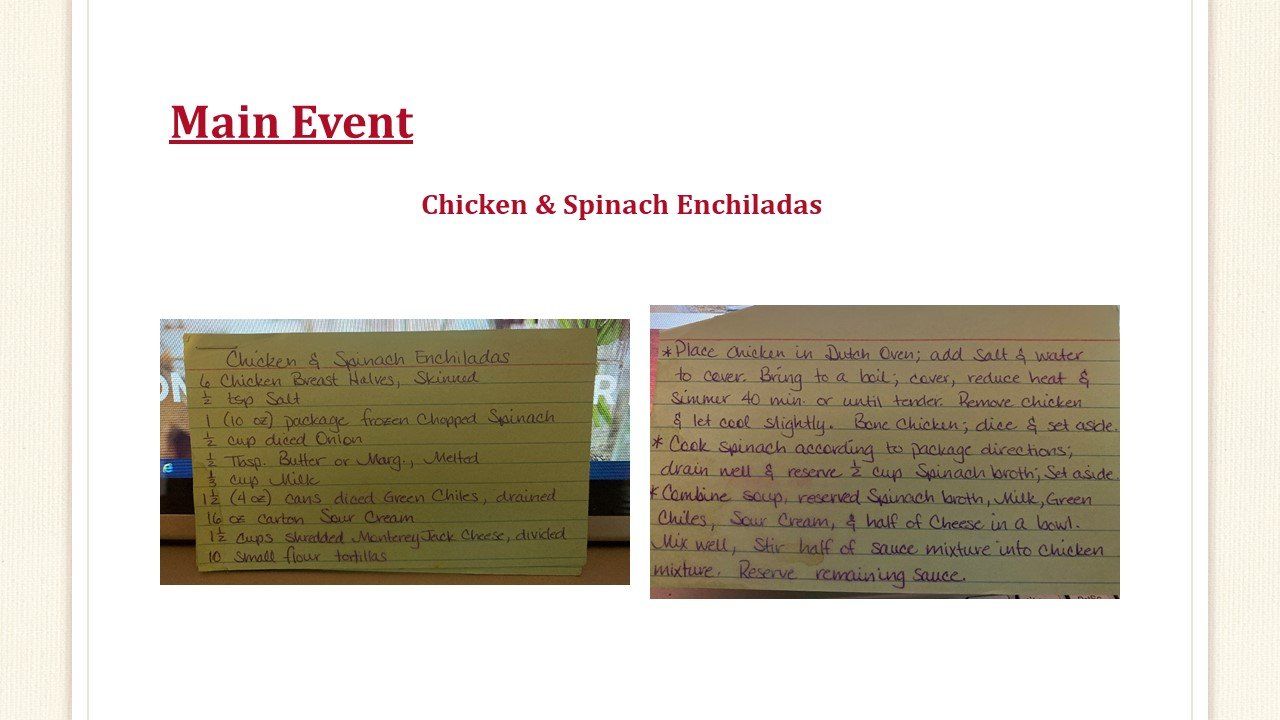 Main Event
Chicken & Spinach Enchiladas
Chicken & Spinach Enchiladas
6 Chicken Breast Halves, Skinned
½ tsp Salt
1 (10 oz) package frozen Chopped Spinach
½ cup diced Onion
½ Tbsp. Butter or Marg., Melted
⅓ cup Milk
1½ (4 oz) cans diced Green Chiles, drained
16 oz carton Sour Cream
1½ cups shredded Monterey Jack Cheese, divided
10 small flour tortillas
* Place chicken in Dutch Oven; add salt & water
to cover. Bring to a boil; cover, reduce heat &
simmer 40 min. or until tender. Remove chicken
& let cool slightly. Bone Chicken; dice & set aside.
* Cook spinach according to package directions;
drain well & reserve ½ cup Spinach broth; set aside.
* Combine soup, reserved Spinach broth, Milk, Green
Chiles, Sour Cream, & half of Cheese in a bowl.
Mix well, Stir half of sauce mixture into chicken
mixture. Reserve remaining sauce.